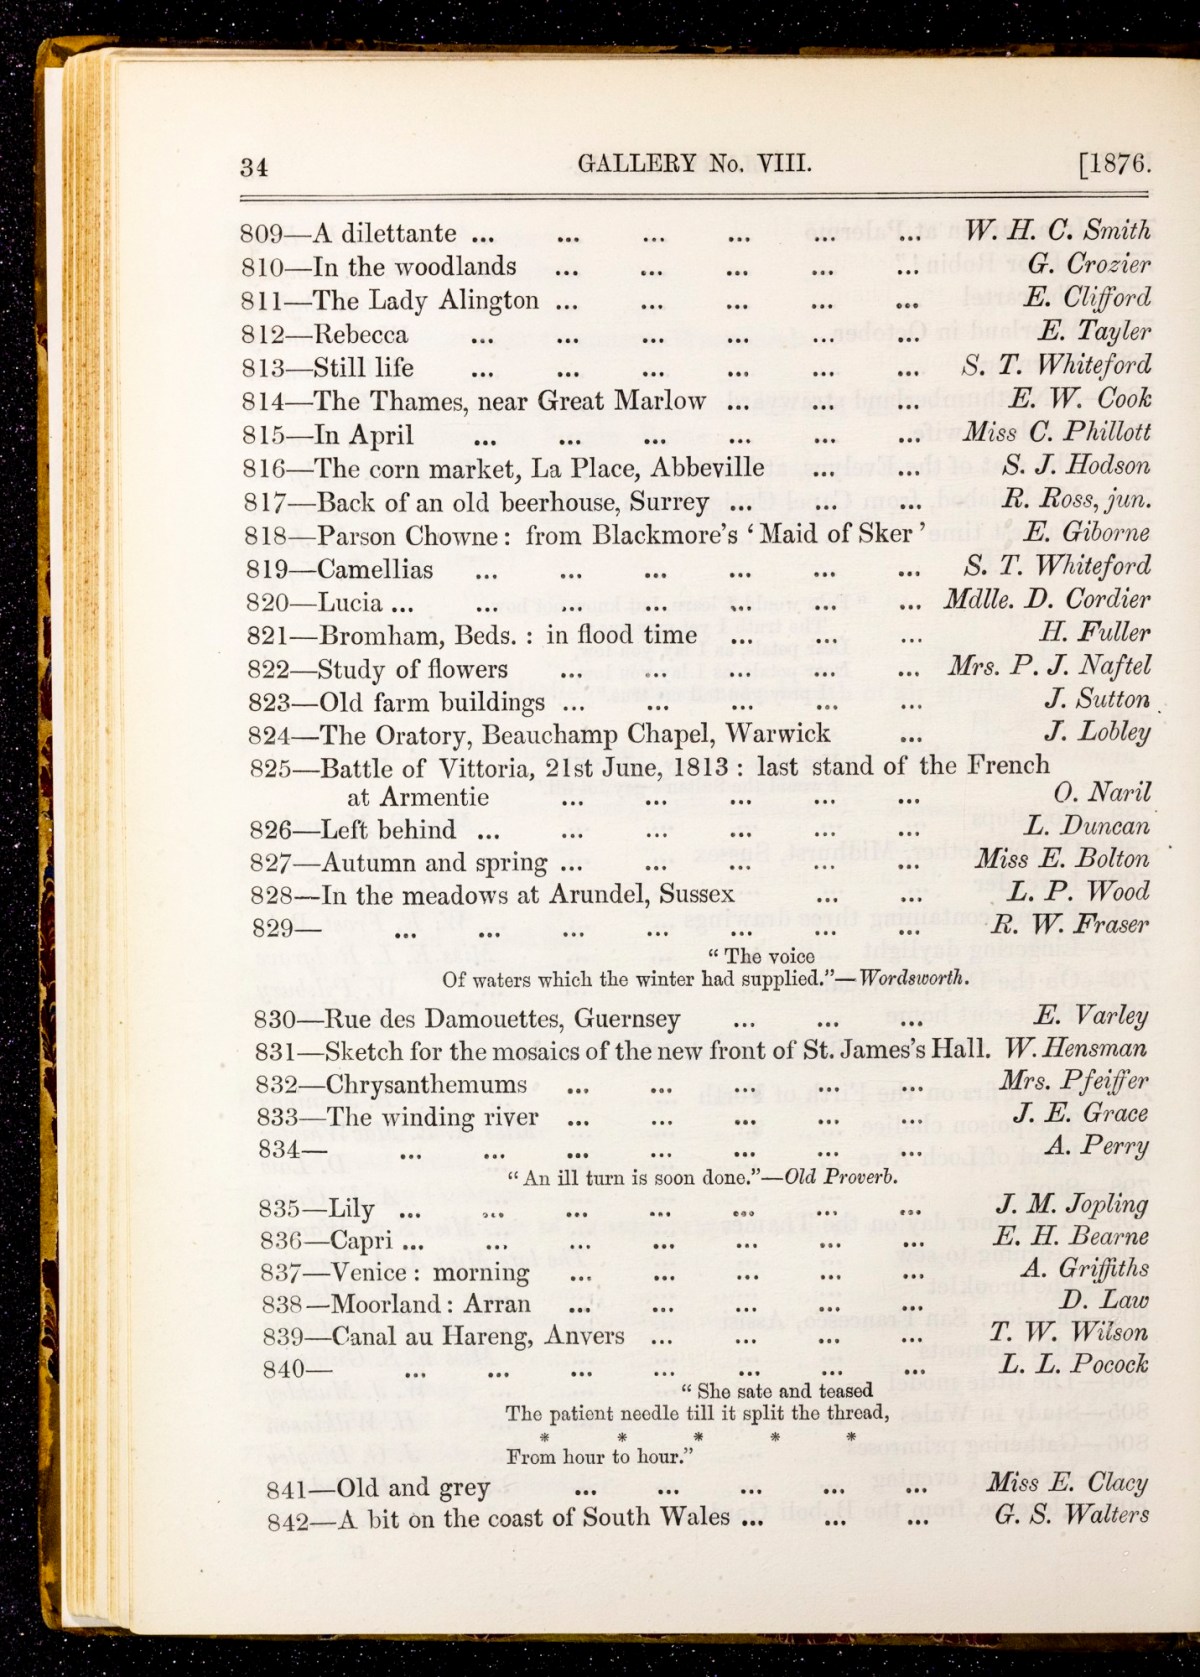 34 GALLERY No. VIII. [1876.
809—A dilettante ... ... ... ... ... ... W. H. C. Smith
810—In the woodlands ... ... ... ... ... G. Crozier
811—The Lady Alington ... ... ... ... ... E. Clifford
812—Rebecca ... ... ... ... ... ... E. Tayler
813—Still life ... ... ... ... ... ... S. T. Whiteford
814—The Thames, near Great Marlow ... ... ... E. W. Cook
815—In April ... ... ... ... ... ... Miss C. Phillott
816—The corn market, La Place, Abbeville ... ... S. J. Hodson
817—Back of an old beerhouse, Surrey ... ... ... R. Ross, jun.
818—Parson Chowne: from Blackmore's 'Maid of Sker' E. Giborne
819—Camellias ... ... ... ... ... ... S. T. Whiteford
820—Lucia ... ... ... ... ... ... ... Mdlle. D. Cordier
821—Bromham, Beds. : in flood time ... ... ... H. Fuller
822—Study of flowers ... ... ... ... ... Mrs. P. J. Naftel
823—Old farm buildings ... ... ... ... ... J. Sutton
824—The Oratory, Beauchamp Chapel, Warwick ... J. Lobley
825—Battle of Vittoria, 21st June, 1813 : last stand of the French
at Armentie ... ... ... ... ... O. Naril
826—Left behind ... ... ... ... ... ... L. Duncan
827—Autumn and spring ... ... ... ... ... Miss E. Bolton
828—In the meadows at Arundel, Sussex ... ... L. P. Wood
829— ... ... ... ... ... ... ... R. W. Fraser
"The voice
Of waters which the winter had supplied."—Wordsworth.
830—Rue des Damouettes, Guernsey ... ... ... E. Varley
831—Sketch for the mosaics of the new front of St. James's Hall. W. Hensman
832—Chrysanthemums ... ... ... ... ... Mrs. Pfeiffer
833—The winding river ... ... ... ... ... J. E. Grace
834— ... ... ... ... ... ... ... A. Perry
"An ill turn is soon done."—Old Proverb.
835—Lily ... ... ... ... ... ... ... J. M. Jopling
836—Capri ... ... ... ... ... ... ... E. H. Bearne
837—Venice : morning ... ... ... ... ... A. Griffiths
838—Moorland : Arran ... ... ... ... ... D. Law
839—Canal au Hareng, Anvers ... ... ... ... T. W. Wilson
840— ... ... ... ... ... ... ... L. L. Pocock
"She sate and teased
The patient needle till it split the thread,
* * * * *
From hour to hour."
841—Old and grey ... ... ... ... ... Miss E. Clacy
842—A bit on the coast of South Wales ... ... ... G. S. Walters